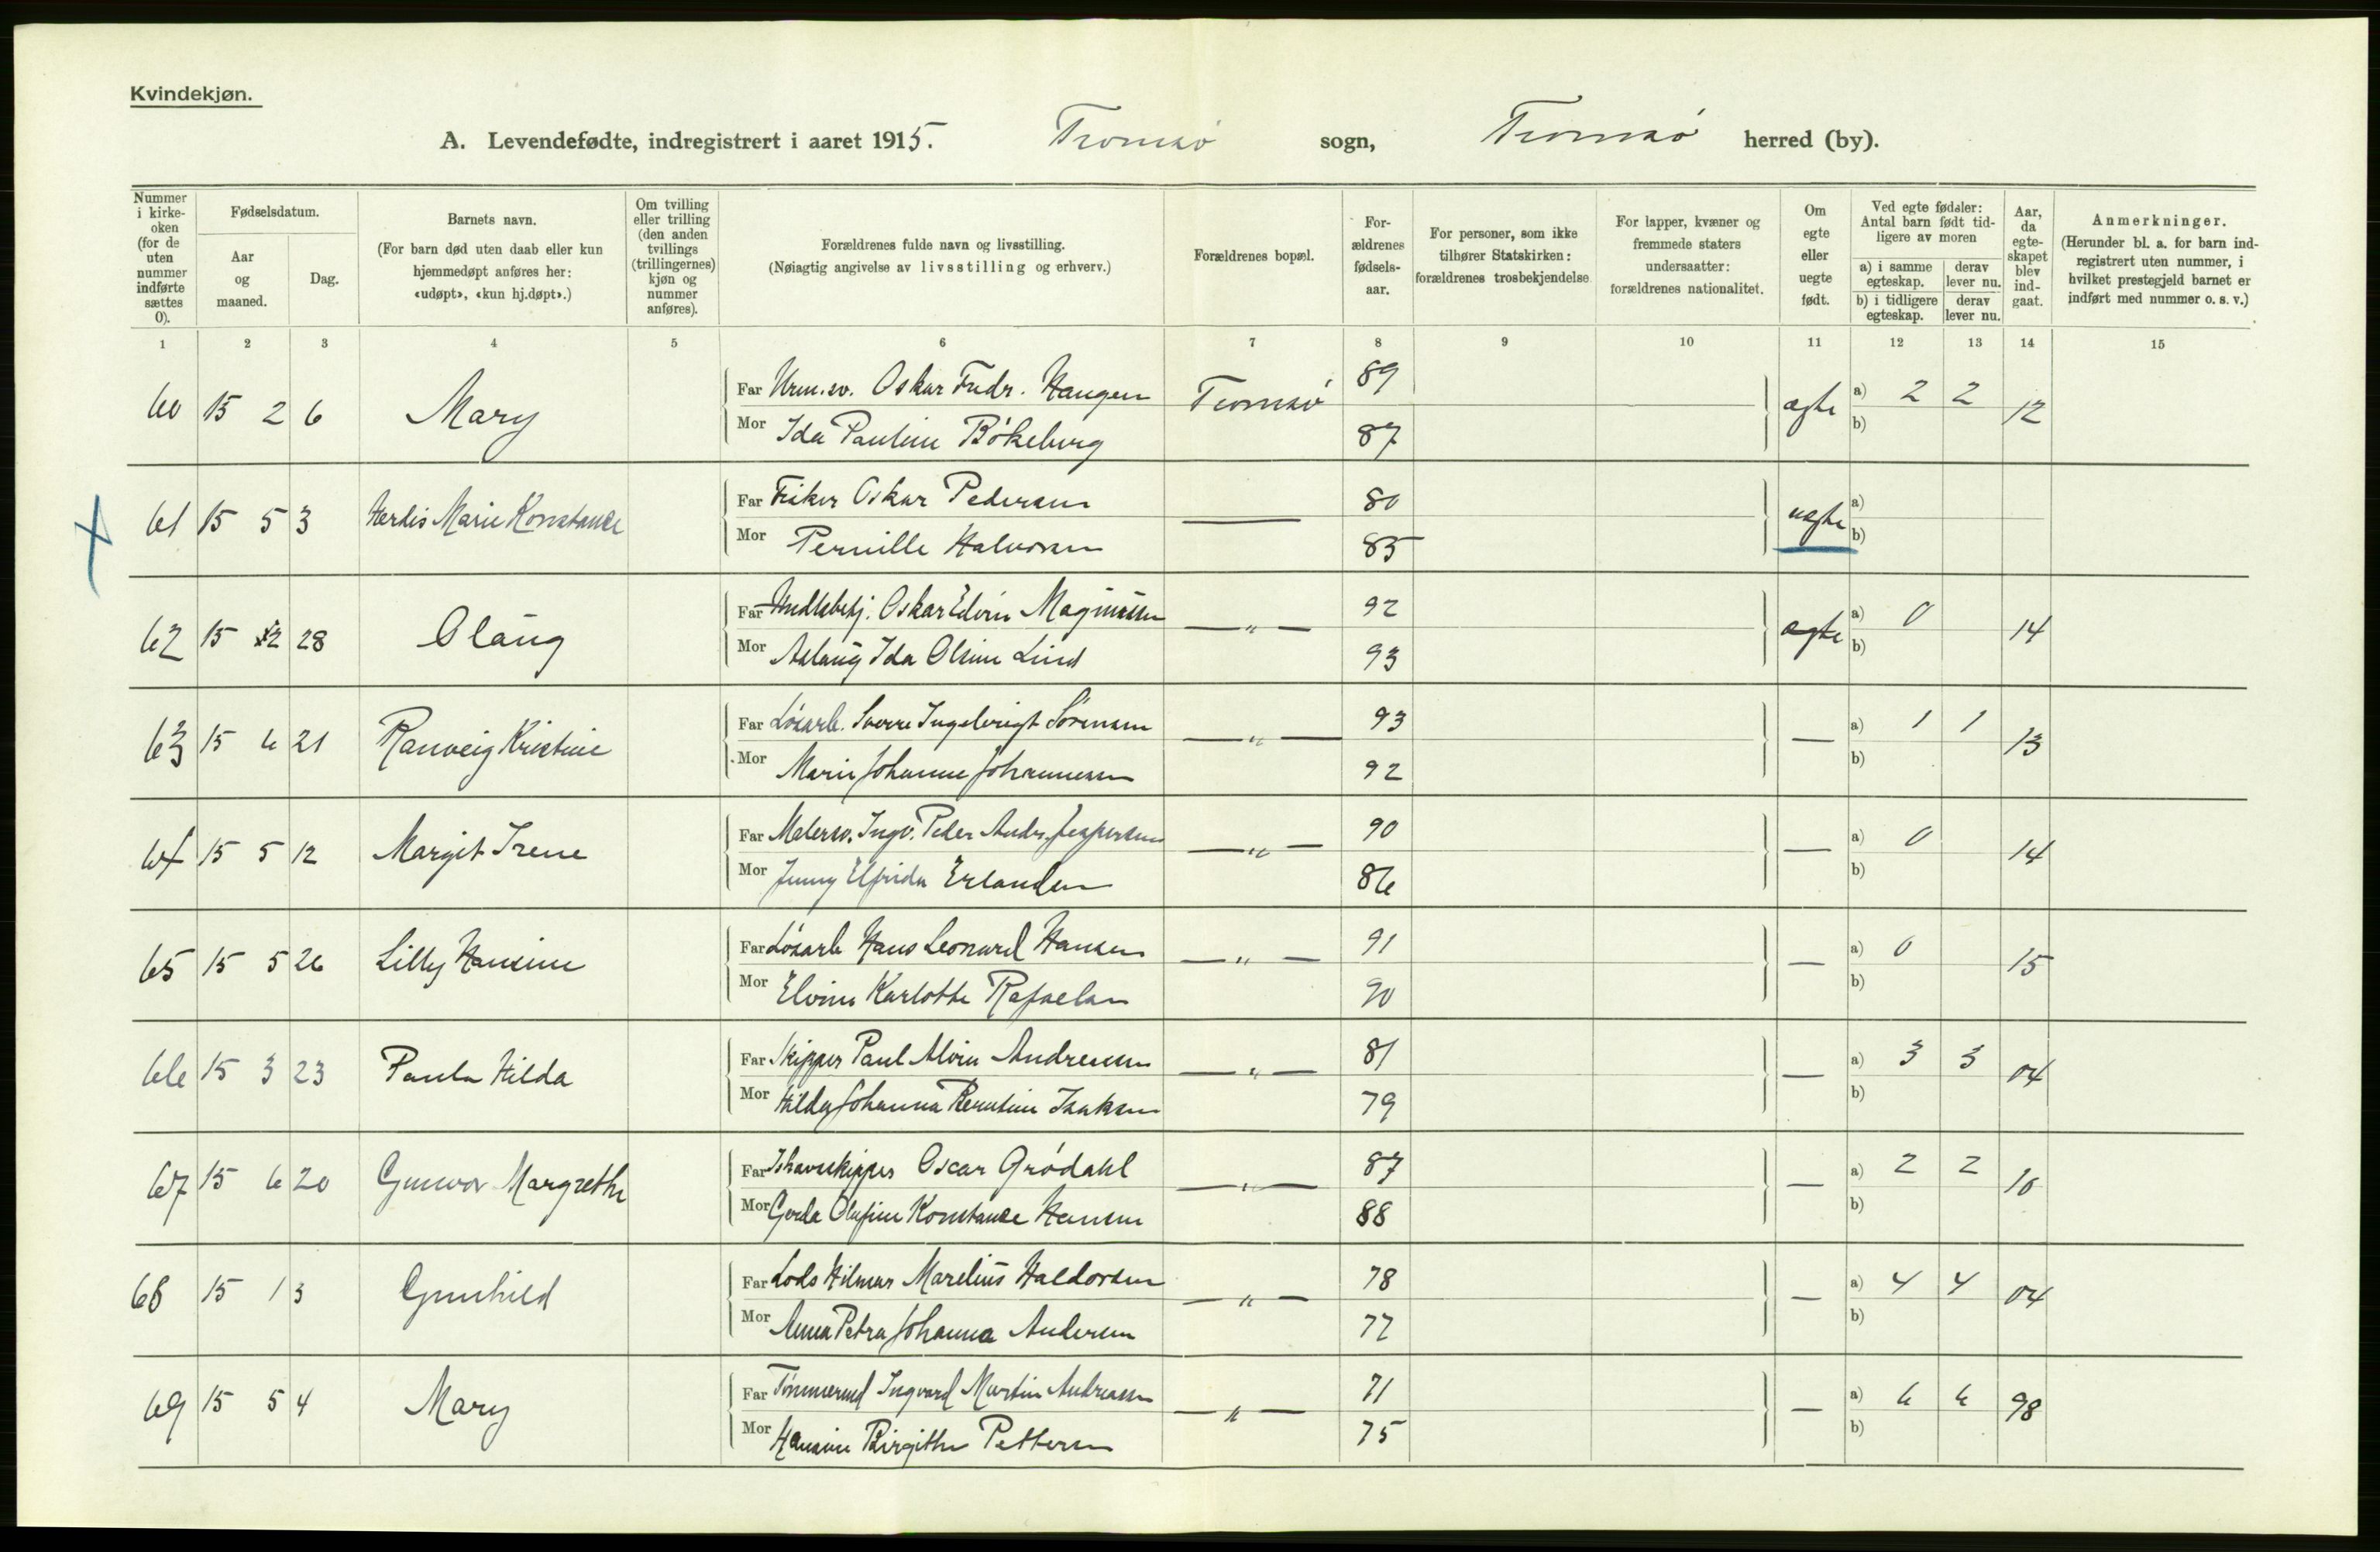 Kvindekjøn.
A. Levendefødte, indregistrert i aaret 1915. Tromsø sogn, Tromsø herred (by).
Nummer i kirke-oken (for de uten nummer indførte sættes 0).
Fødselsdatum.
Aar og maaned.
Dag.
Barnets navn.
(For barn død uten daab eller kun hjemmedøpt anføres her: «udøpt», «kun hj.døpt».)
Om tvilling eller trilling (den anden tvillings (trillingernes) kjøn og nummer anføres).
Forældrenes fulde navn og livsstilling.
(Nøiagtig angivelse av livsstilling og erhverv.)
Forældrenes bopæl.
For-ældrenes fødsels-aar.
For personer, som ikke tilhører Statskirken: forældrenes trosbekjendelse
For lapper, kvæner og fremmede staters undersaatter: forældrenes nationalitet.
Om egte eller uegte født.
Ved egte fødsler: Antal barn født tid-ligere av moren
a) i samme egteskap. derav lever nu.
b) i tidligere egteskap. derav lever nu.
Aar, da egte-skapet blev ind-gaat.
Anmerkninger.
(Herunder bl. a. for barn ind-registrert uten nummer, i hvilket prestegjeld barnet er indført med nummer o. s. v.)
1 2 3 4 5 6 7 8 9 10 11 12 13 14 15
60 15 2 6 Mary Far Urm.sv. Oskar Fredr. Haugen Tromsø 89 egte a) 2 2 12
Mor Ida Pauline Bökeberg 87 b)
61 15 5 3 Herdis Marie Konstance Far Fisker Oskar Pedersen — 80 uegte a)
Mor Pernille Halvorsen 85 b)
62 15 2 28 Olaug Far Oskar Edvin Magnussen — " — 92 egte a) 0 14
Mor Aslaug Ida Olsine Lind 93 b)
63 15 6 21 Ranveig Kristine Far Løsarb. Sverre Ingebrigt Sörensen — " — 93 — a) 1 1 13
Mor Marie Johanne Johannessen 92 b)
64 15 5 12 Margit Irene Far Malersv. Ingv. Peder Andr. Jespersen — " — 90 — a) 0 14
Mor Jenny Elfrida Erlandsen 86 b)
65 15 5 26 Lilly Hansine Far Løsarb Hans Leonard Hansen — " — 91 — a) 0 15
Mor Elvine Karlotte Rafaelsen 90 b)
66 15 3 23 Paula Hilda Far Skipper Paul Alvin Andreassen — " — 81 — a) 3 3 04
Mor Hilda Johanna Isaksen 79 b)
67 15 6 20 Gunvor Margrethe Far Ishavsskipper Oscar Grödahl — " — 87 — a) 2 2 10
Mor Gerda Olufine Konstance Hansen 88 b)
68 15 1 3 Gunhild Far Lods Hilmar Marelius Haldorsen — " — 78 — a) 4 4 04
Mor Anna Petra Johanna Andersen 77 b)
69 15 5 4 Mary Far Tömmermd Ingvard Martin Andreassen — " — 71 — a) 6 6 98
Mor Hansine Birgithe Pettersen 75 b)